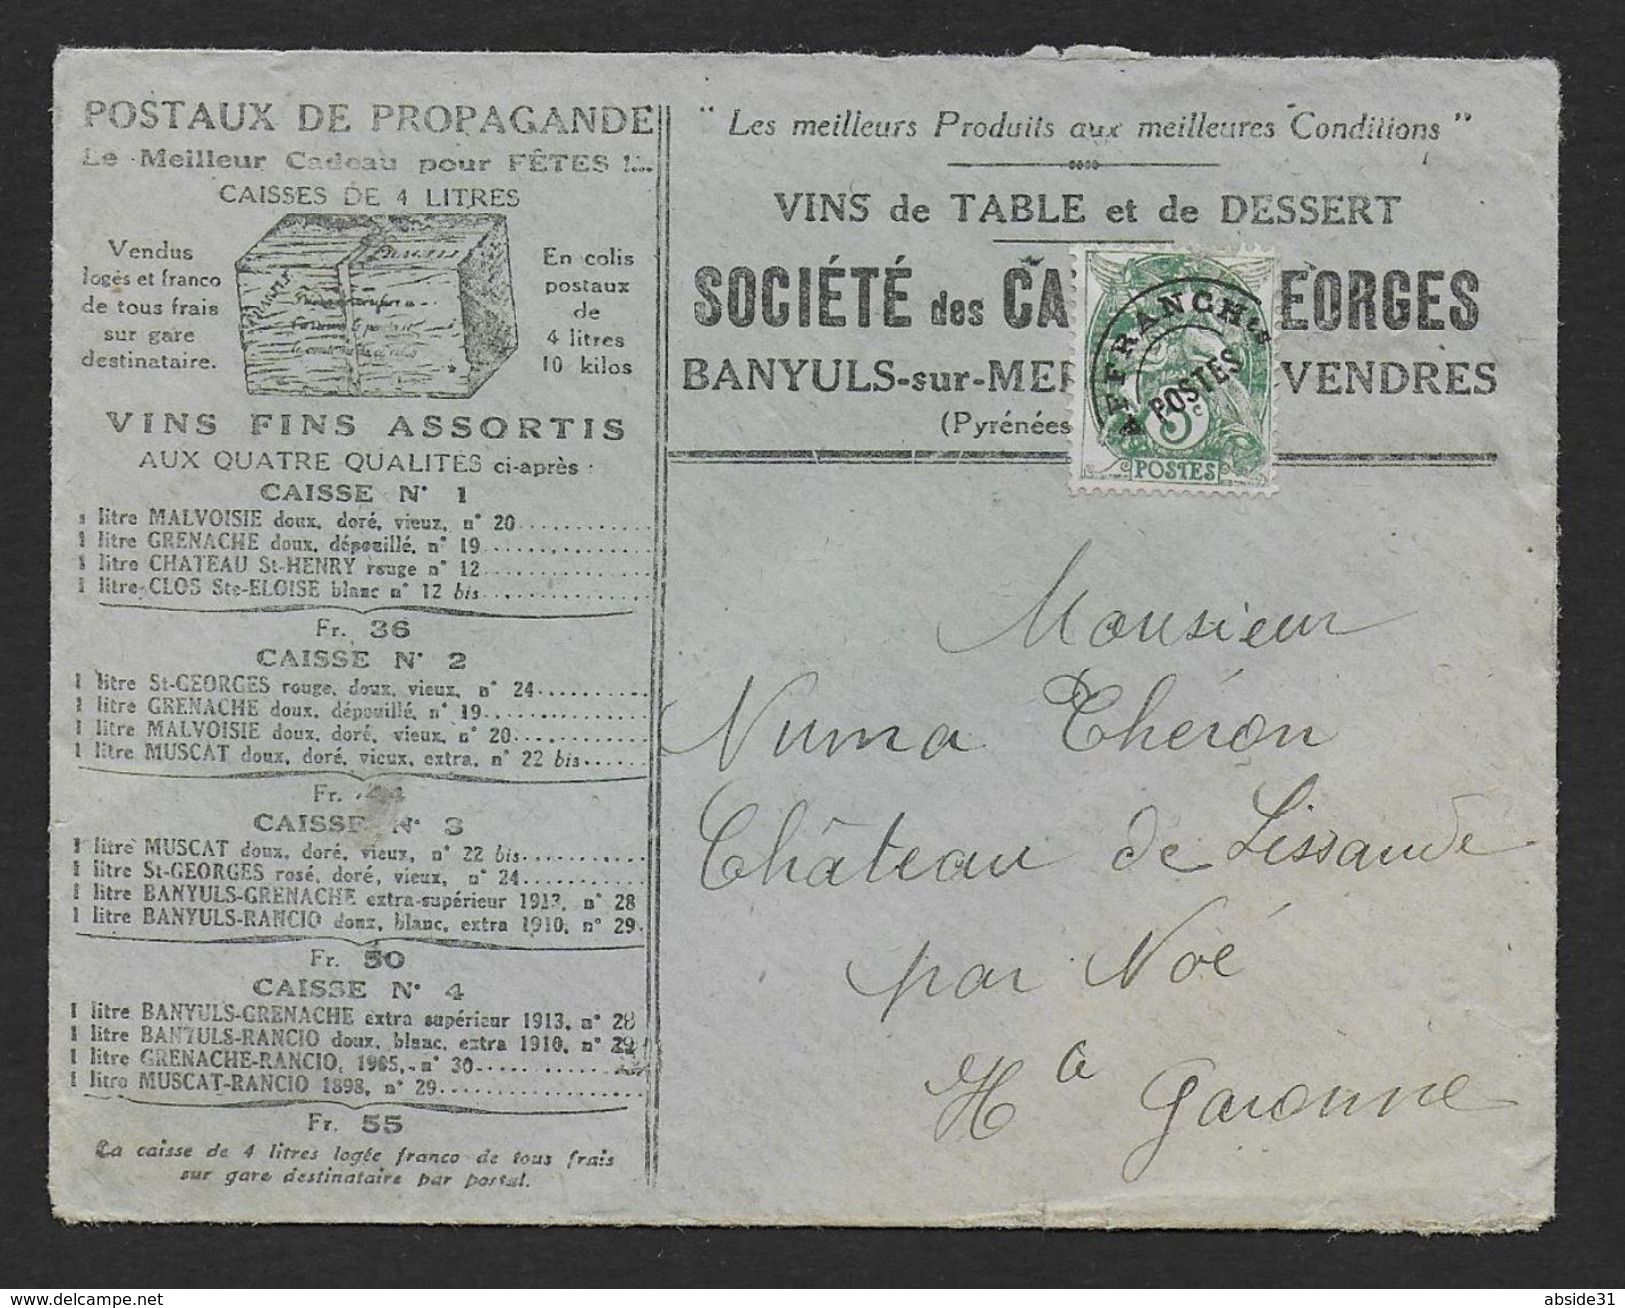 POSTAUX DE PROPAGANDE
Le Meilleur Cadeau pour FÊTES !...
CAISSES DE 4 LITRES
Vendus
logés et franco
de tous frais
sur gare
destinataire.
En colis
postaux
de
4 litres
10 kilos
VINS FINS ASSORTIS
AUX QUATRE QUALITÉS ci-après :
CAISSE N° 1
1 litre MALVOISIE doux, doré, vieux, n° 20
1 litre GRENACHE doux, dépouillé, n° 19
1 litre CHATEAU St-HENRY rouge n° 12
1 litre CLOS Ste-ELOISE blanc n° 12 bis
Fr. 36
CAISSE N° 2
1 litre St-GEORGES rouge, doux, vieux, n° 24
1 litre GRENACHE doux, dépouillé, n° 19
1 litre MALVOISIE doux, doré, vieux, n° 20
1 litre MUSCAT doux, doré, vieux, extra, n° 22 bis
Fr. 44
CAISSE N° 3
1 litre MUSCAT doux, doré, vieux, n° 22 bis
1 litre St-GEORGES rosé, doré, vieux, n° 24
1 litre BANYULS-GRENACHE extra-supérieur 1913, n° 28
1 litre BANYULS-RANCIO doux, blanc, extra 1910, n° 29
Fr. 50
CAISSE N° 4
1 litre BANYULS-GRENACHE extra supérieur 1913, n° 28
1 litre BANYULS-RANCIO doux, blanc, extra 1910, n° 29
1 litre GRENACHE-RANCIO, 1905, n° 30
1 litre MUSCAT-RANCIO 1898, n° 29
Fr. 55
La caisse de 4 litres logée franco de tous frais
sur gare destinataire par postal.
"Les meilleurs Produits aux meilleures Conditions"
VINS de TABLE et de DESSERT
SOCIÉTÉ des CA EORGES
BANYULS-sur-MER VENDRES
(Pyrénées
AFFRANCHts
POSTES
5c
POSTES
Monsieur
Numa Théron
Château de Lissaude
par Noé
Hte Garonne
delcampe.net
abside31